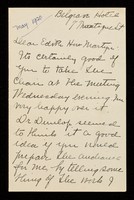 Belgrave Hotel
Dear Edith How Martyn
It's certainly good of
you to take the
chair at the Meeting
Wednesday evening I'm
very happy over it
Dr Dunlop seemed
to think it a good
idea if you would
prepare the audience
for me by telling some
thing of the work I